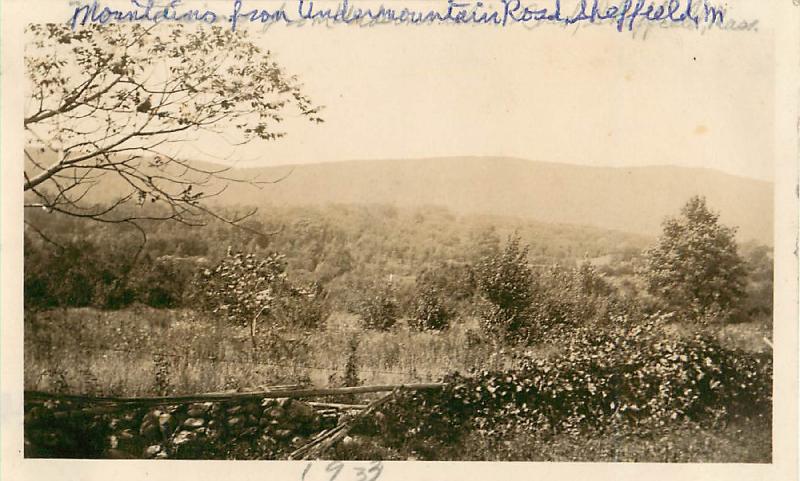 Mountains from Undermountain Road, Sheffield, M
1933